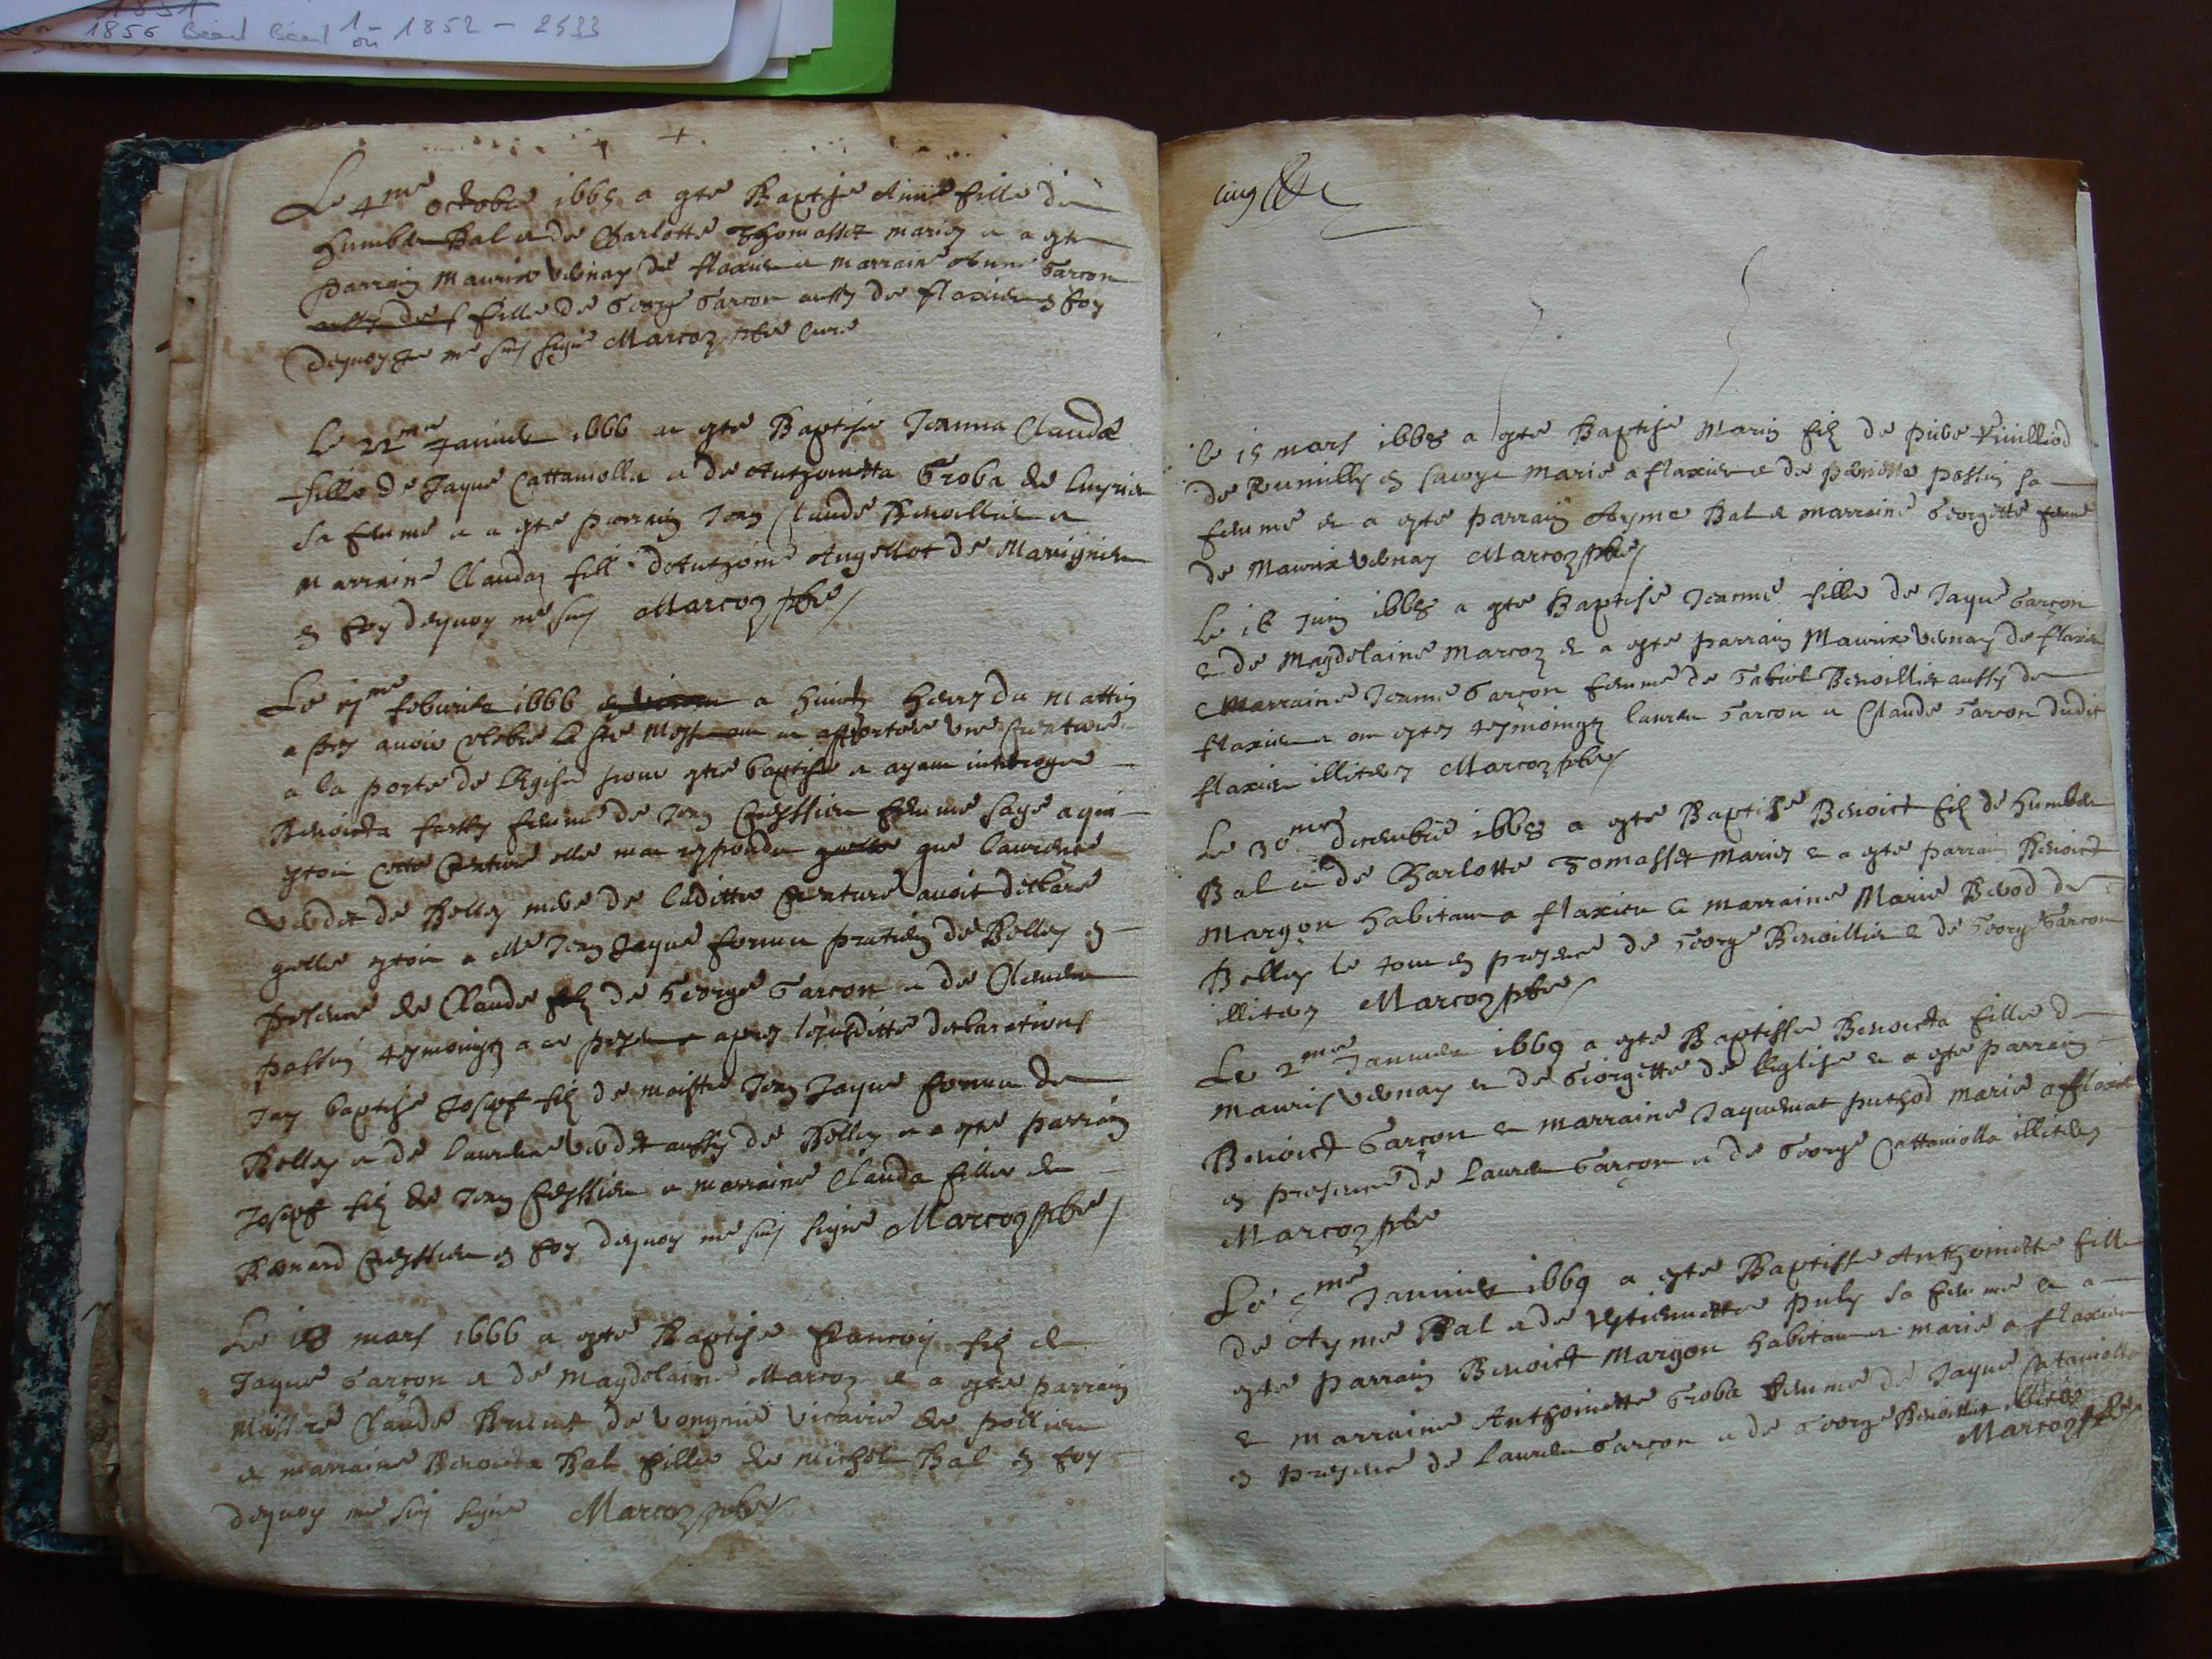 1856 Béard Béard ou 1 - 1852 - 2533
Le 4me octobre 1665 a este Baptisé Anne fille de
humber Bal et de Charlotte Thomasset mariez et a este
parrain Maurix Vernay de flaxieu et marraine Anne Garcon
aussy de f fille de George Garcon aussy de flaxieu en foy
dequoy Je me suis signé Marcoz pbre curé
Le 22me Janvier 1666 a este Baptisé Jeanna Clauda
fille de Jaque Cattaniolla et de Anthoinetta Groba de
sa femme et a este parrain Jean Claude Benoillier et
marraine Claudaz fille dAnthoine Angellot de Marignieu
en foy dequoy me suis Marcoz pbre
Le me febvrier 1666 a huict heures du mattin
apres avoir celebré la ste Messe on a apportee une creature
a la porte de lEglise pour estre baptisé et ayant interrogé
Benoicta femme de Jean Cressieu femme sage a qui
estoit cette creature elle ma respondu quelle que laurence
de Belley mere de laditte creature avoit declaré
quelle estoit a Me Jean Jaque praticien de Belley en
presence de Claude filz de George Garcon et de Clement
passin tesmoingz a ce apres lesusditte declarations
Jay baptisé Josept filz de maistre Jean Jaque de
Belley et de laurence aussy de Belley et a este parrain
Josept filz de Jean Cressieu et marraine Clauda fille de
Bernard Cressieu en foy dequoy me suis signé Marcoz pbre
Le 18 mars 1666 a este Baptisé francois filz de
Jaque Garcon et de Magdelaine Marcoz et a este parrain
Messire Claude Brunet de Vongne vicaire de pollieu
et marraine Benoicta Bal fille de Michel Bal en foy
dequoy me suis signé Marcoz pbre
le 15 mars 1668 a este Baptisé Marin filz de
de Rumilly en savoye marié a flaxieu et de pernette passin sa
femme et a este parrain Ayme Bal et marraine Georgette femme
de Maurix Vernay Marcoz pbre
Le 16 Juin 1668 a este Baptisé Jeanne fille de Jaque Garcon
et de Magdelaine Marcoz et a este parrain Maurix Vernay de flaxieu
et Marraine Jeanne Garcon femme de Gabriel Benoillier aussy de
flaxieu et on estez tesmoingz laurens Garcon et Claude Garcon dudit
flaxieu illiterez Marcoz pbre
Le 30me decembre 1668 a este Baptisé Benoict filz de humber
Bal et de Charlotte Tomasset mariez et a este parrain Benoict
Margon habitant a flaxieu et marraine Marie de
Belley le tout en presence de George Benoillier et de George Garcon
illiterez Marcoz pbre
Le 2me Janvier 1669 a este Baptisse Benoicta fille de
Mauris Vernay et de Georgette de lEglise et a este parrain
Benoict Garcon et marraine Jaquemat puthod marié a flaxieu
en presence de laurens Garcon et de George Cattaniolla illiterez
Marcoz pbre
Le 5me Janvier 1669 a este Baptisse Anthoinette fille
de Ayme Bal et de Estiennette puly sa femme et a
este parrain Benoict Margon habitant et marié a flaxieu
et marraine Anthoinette Groba femme de Jaque Cataniolla
en presence de laurens Garcon et de George Benoillier illiterez
Marcoz pbre